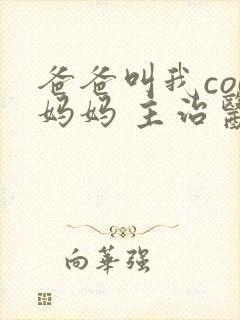 爸爸叫我co
妈妈 主治
向華强